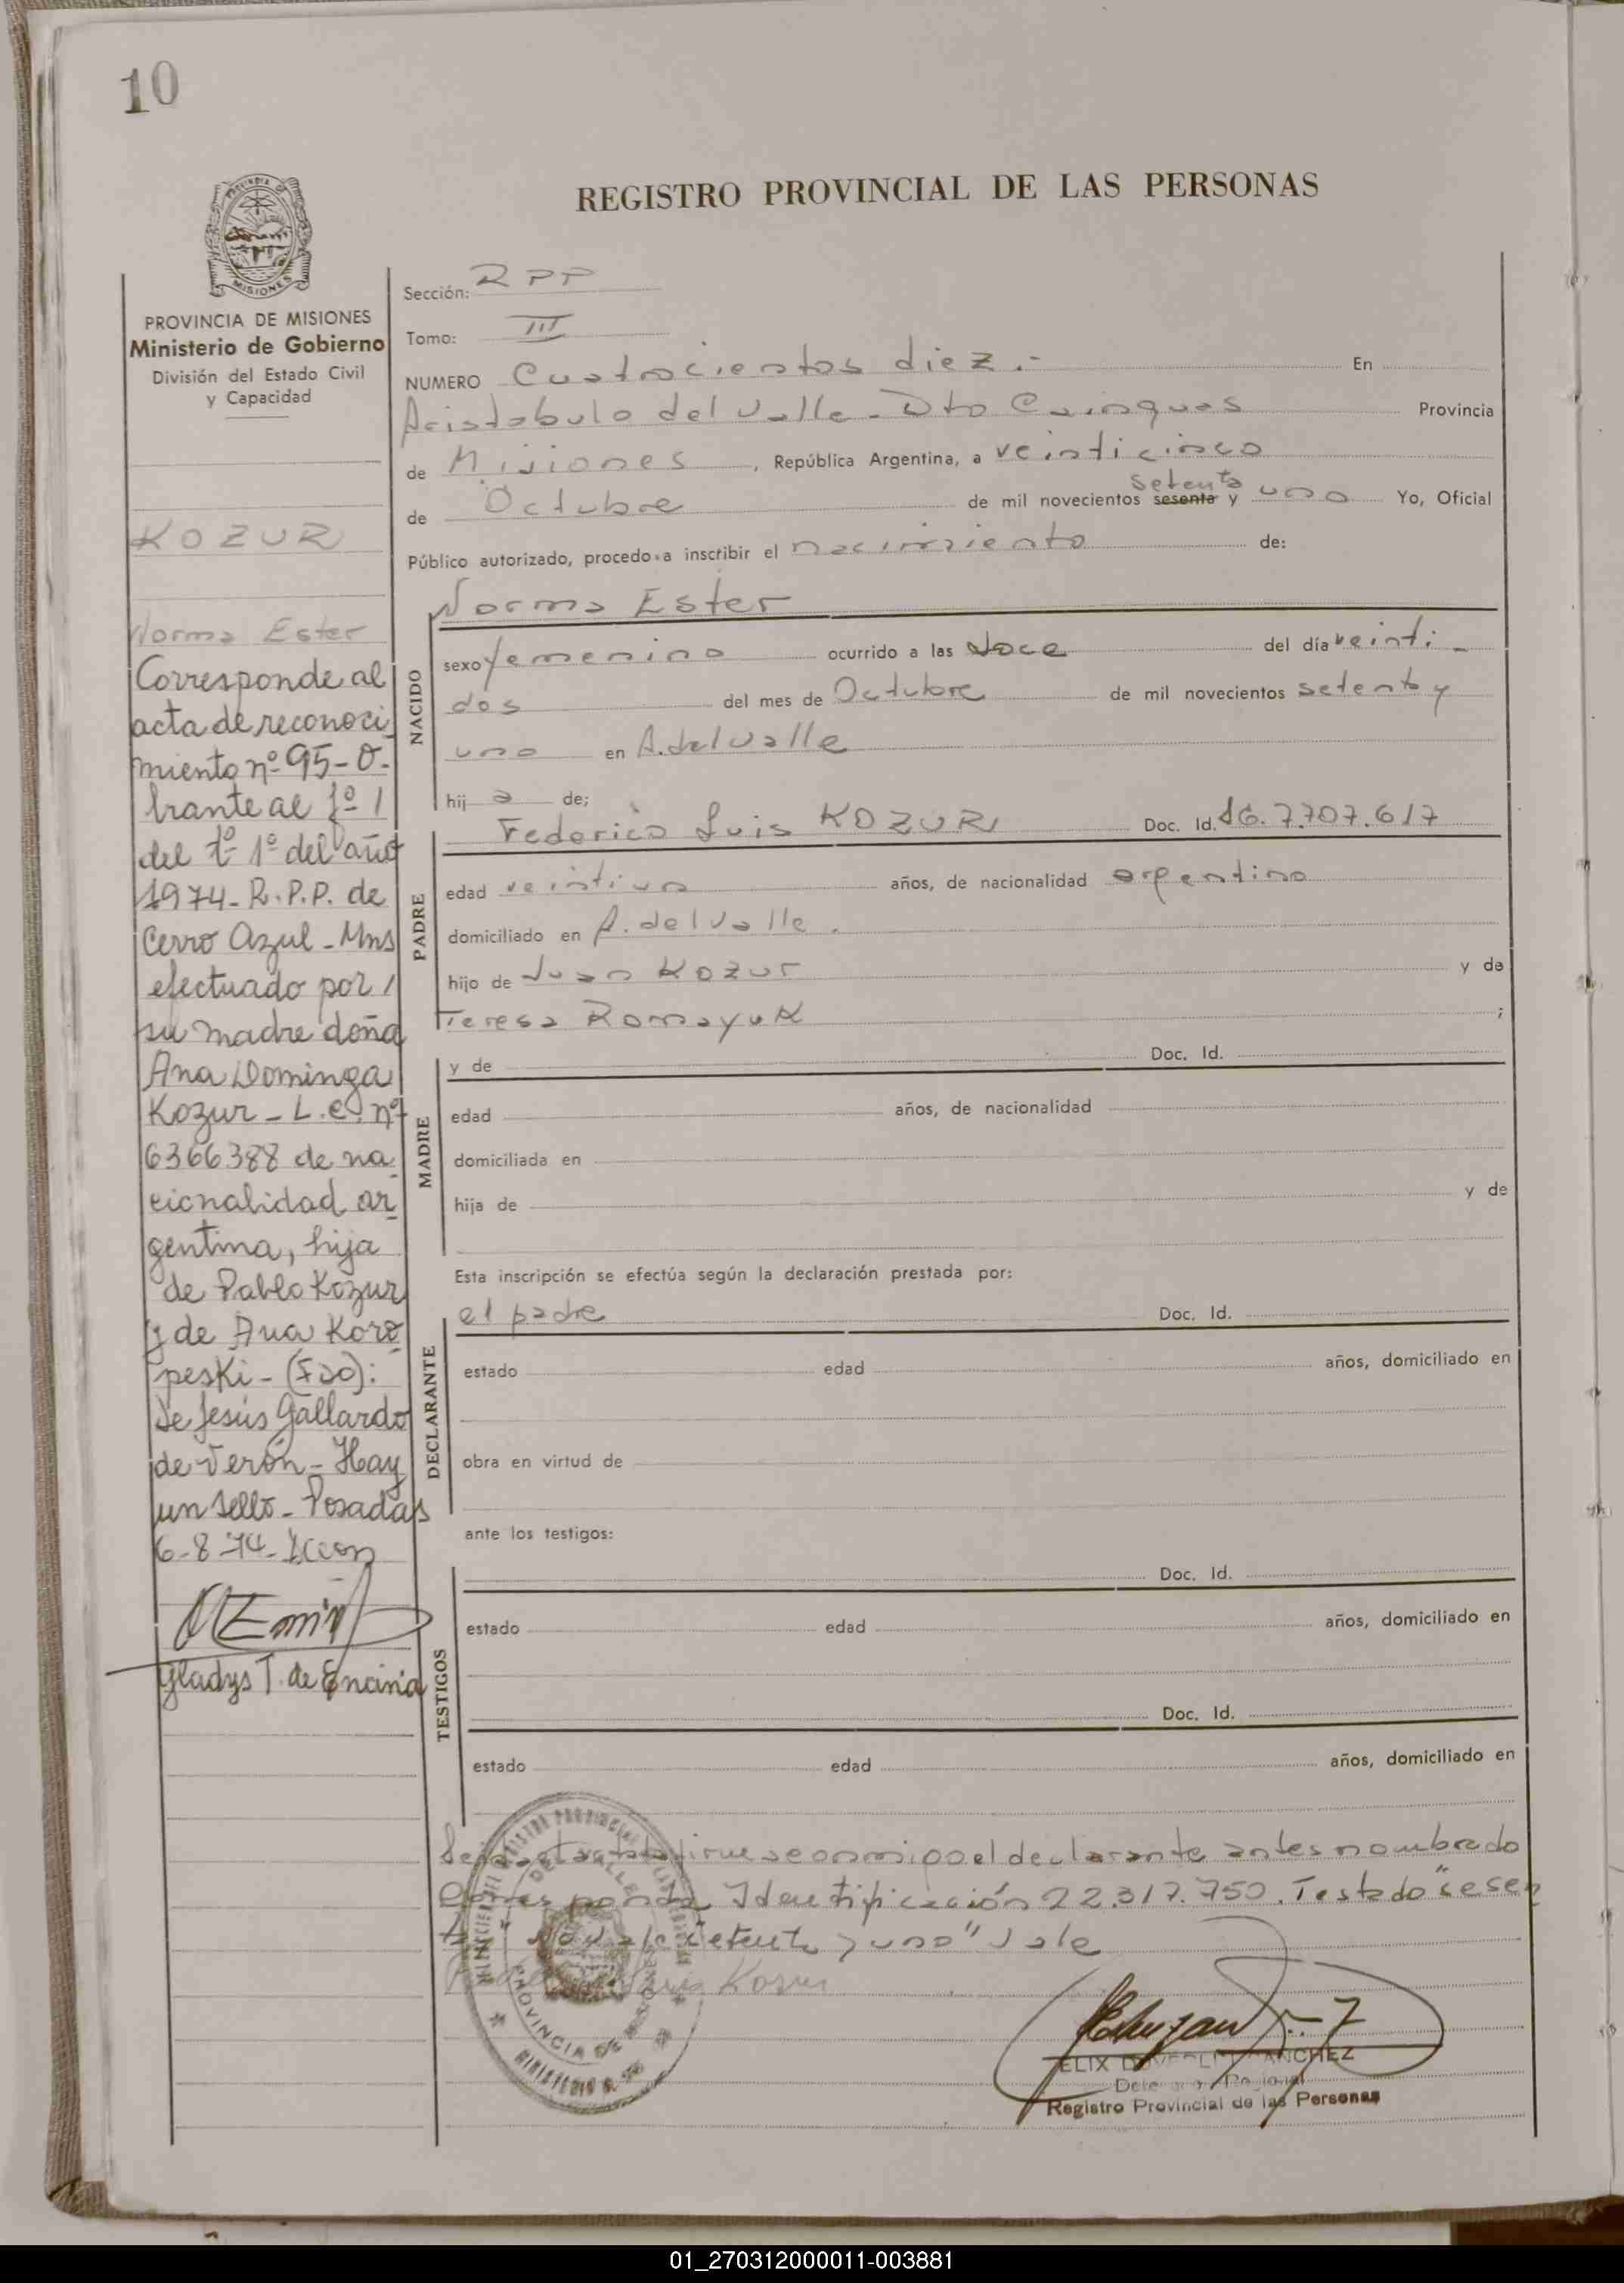 10
REGISTRO PROVINCIAL DE LAS PERSONAS
MISIONES
PROVINCIA DE MISIONES
Ministerio de Gobierno
División del Estado Civil
y Capacidad
KOZUR
Norma Ester
Corresponde al
acta de reconoci
miento nº 95-O-
brante al fº 1
del tº 1º del año
1974- R.P.P. de
Cerro Azul - Mns
efectuado por /
su madre doña
Ana Dominga
Kozur - L.C. nº
6366388 de na
cionalidad ar
gentina, hija
de Pablo Kozur
y de Ana Koro
peski - (Fdo):
De Jesús Gallardo
de Verón - Hay
un sello - Posadas
6-8-74-
Gladys T. de Encina
Sección: RPP
Tomo: III
NUMERO Cuatrocientos diez.- En
Aristobulo del Valle - Dto Cainguas Provincia
de Misiones, República Argentina, a veinticinco
setenta
de Octubre de mil novecientos sesenta y uno Yo, Oficial
Público autorizado, procedo a inscribir el nacimiento de:
Norma Ester
NACIDO
sexo femenino ocurrido a las doce del día veinti-
dos del mes de Octubre de mil novecientos setenta y
uno en A. del Valle
hija de;
PADRE
Federico Luis KOZUR Doc. Id. 7.707.617
edad veintiun años, de nacionalidad argentino
domiciliado en A. del Valle.
hijo de Juan Kozur y de
Teresa Romayuk ;
MADRE
y de Doc. Id.
edad años, de nacionalidad
domiciliada en
hija de y de
Esta inscripción se efectúa según la declaración prestada por:
DECLARANTE
el padre Doc. Id.
estado edad años, domiciliado en
obra en virtud de
ante los testigos:
TESTIGOS
Doc. Id.
estado edad años, domiciliado en
Doc. Id.
estado edad años, domiciliado en
firme conmigo el declarante antes nombrado
Identificación 22.317.750. Testado "sesen
setenta y uno" Vale
Luis Kozur
PROVINCIA DE MISIONES
SANCHEZ
Registro Provincial de las Personas
01_270312000011-003881